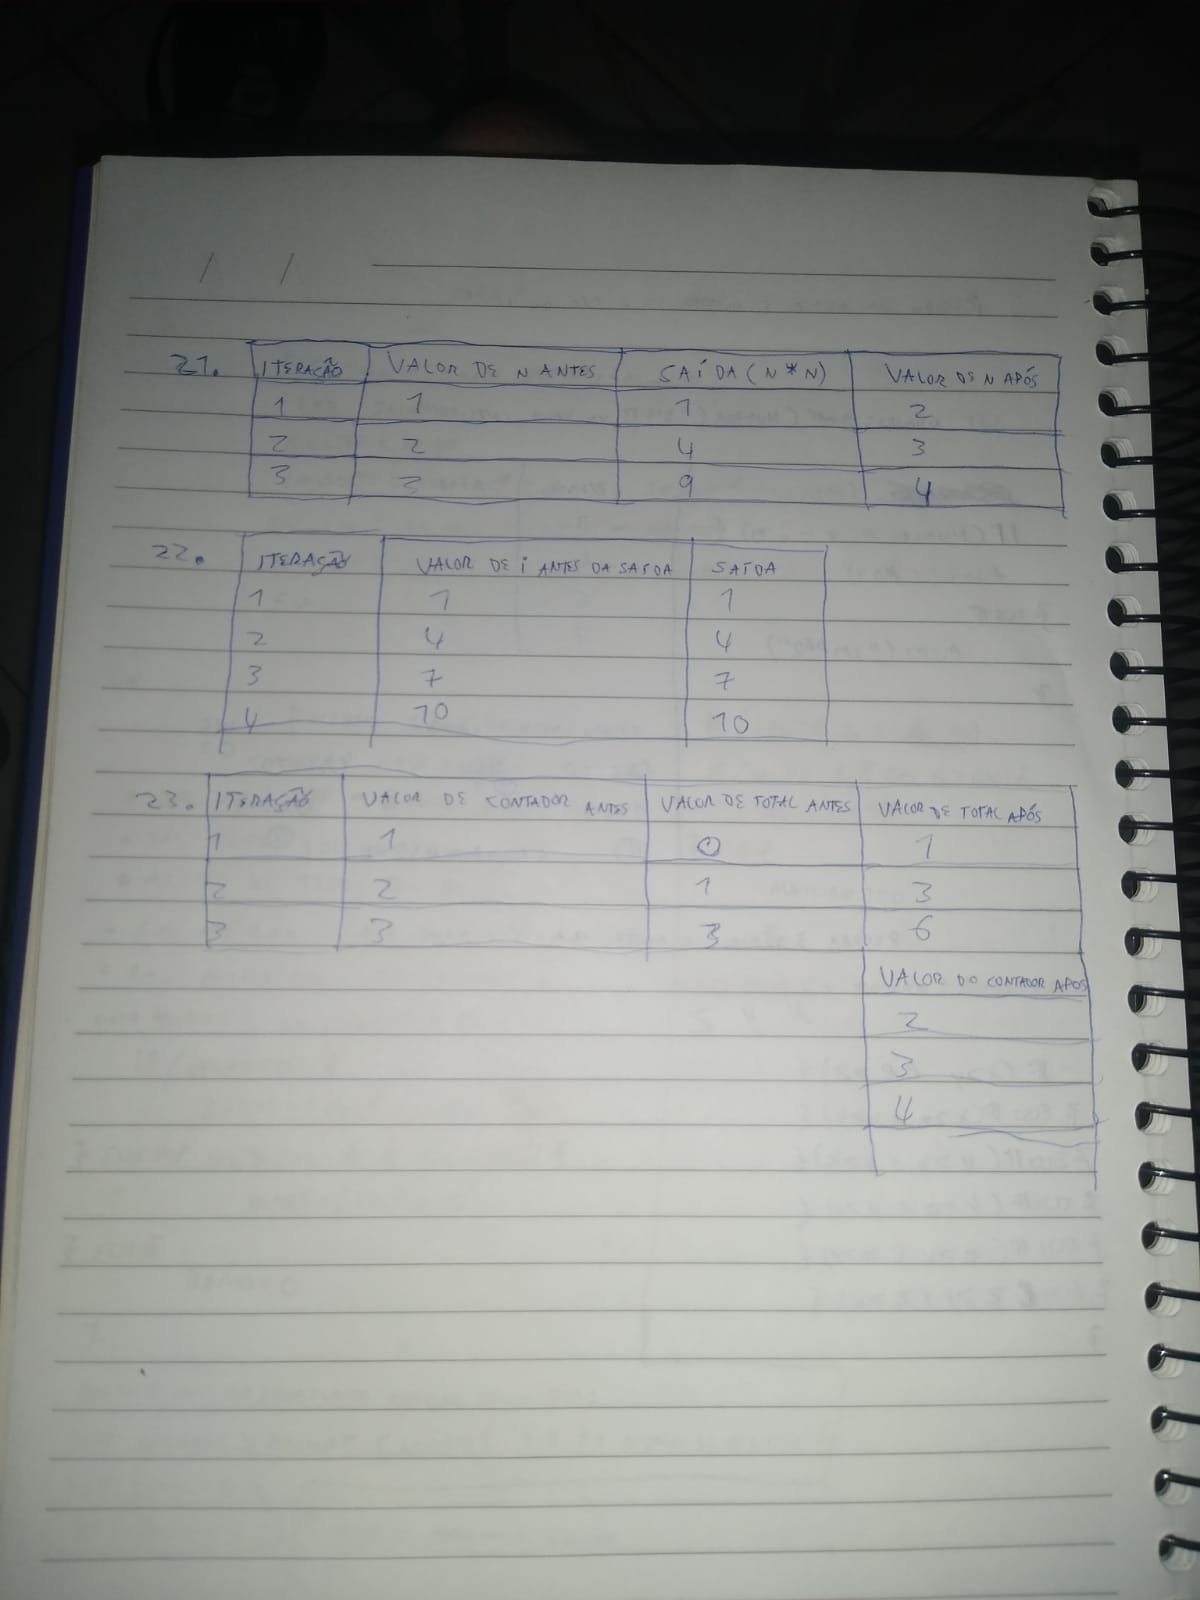 / /
21. ITERAÇÃO VALOR DE N ANTES SAÍDA (N*N) VALOR DE N APÓS
1 1 1 2
2 2 4 3
3 3 9 4
22. ITERAÇÃO VALOR DE i ANTES DA SAÍDA SAÍDA
1 1 1
2 4 4
3 7 7
4 10 10
23. ITERAÇÃO VALOR DE CONTADOR ANTES VALOR DE TOTAL ANTES VALOR DE TOTAL APÓS
1 1 0 1
2 2 1 3
3 3 3 6
VALOR DO CONTADOR APOS
2
3
4